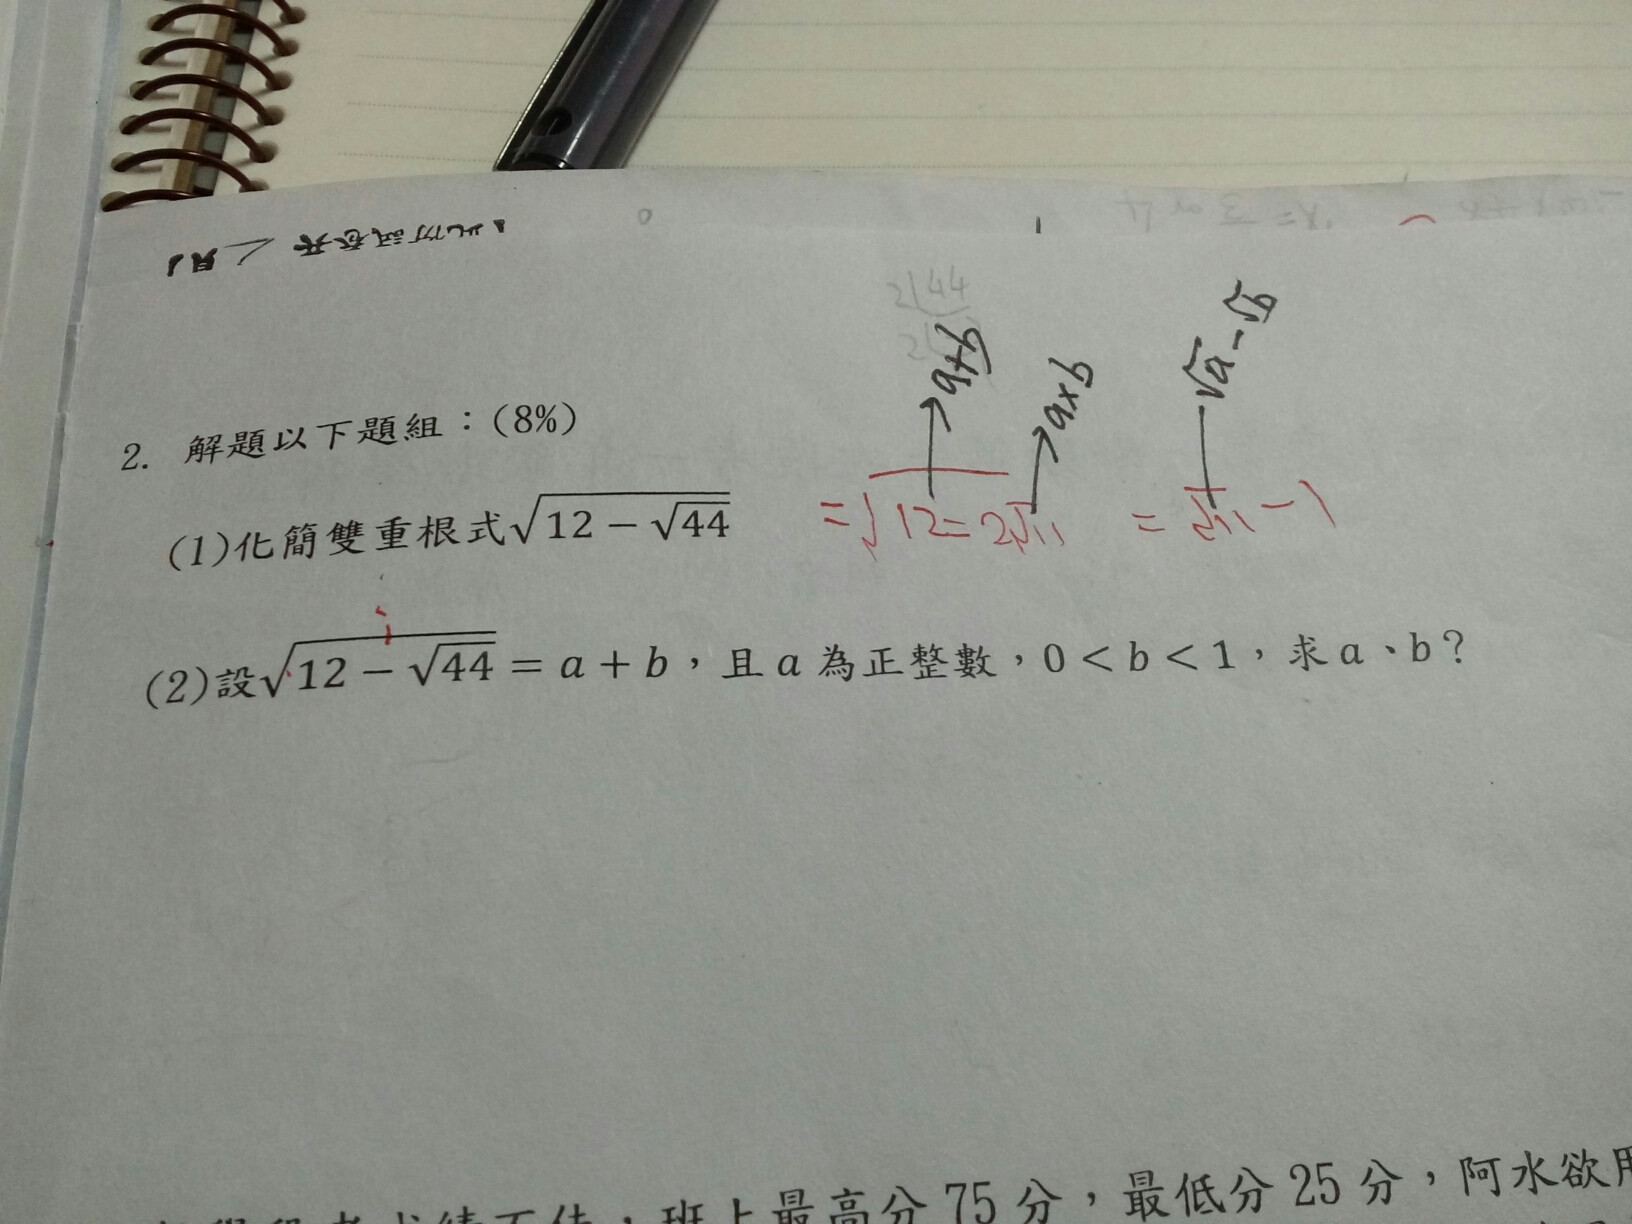 2. 解題以下題組：(8%)
(1)化簡雙重根式√12 − √44 = √12 = 2√11 = √11 − 1
a+b
a×b
√a − √b
2|44
(2)設√12 − √44 = a + b，且 a 為正整數，0 < b < 1，求 a、b？
最高分 75 分，最低分 25 分，阿水欲用